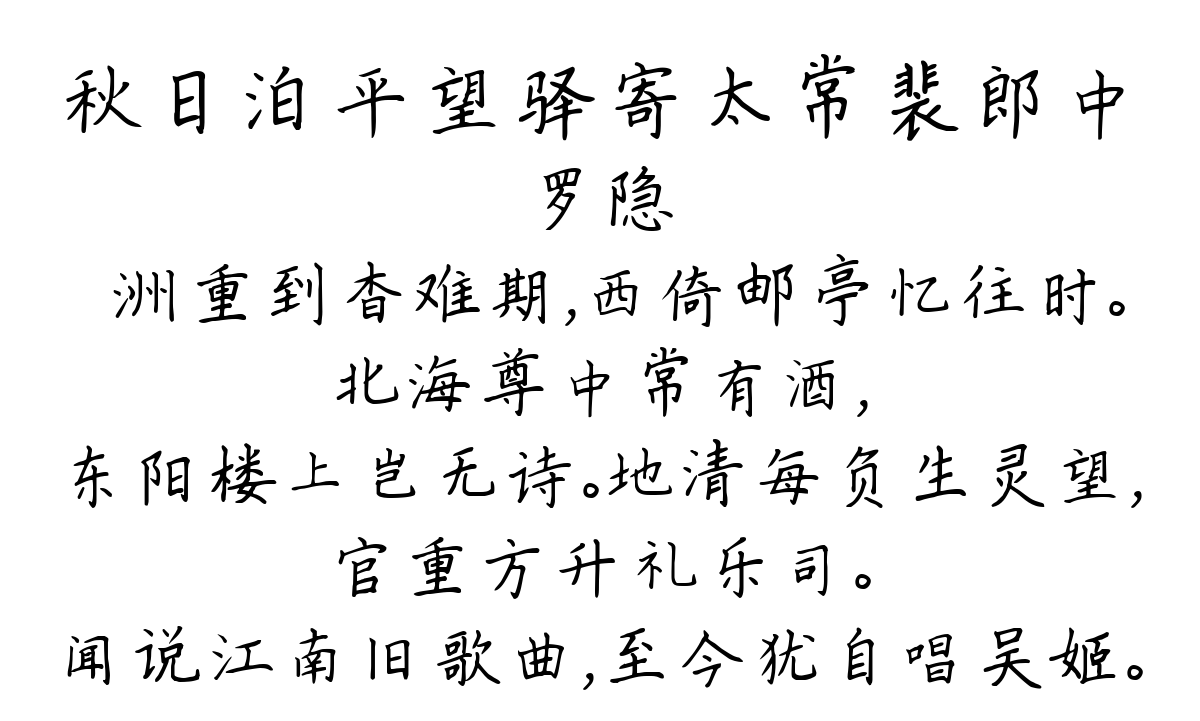 秋日泊平望驿寄太常裴郎中
罗隐
洲重到杳难期,西倚邮亭忆往时。
北海尊中常有酒,
东阳楼上岂无诗。地清每负生灵望,
官重方升礼乐司。
闻说江南旧歌曲,至今犹自唱吴姬。